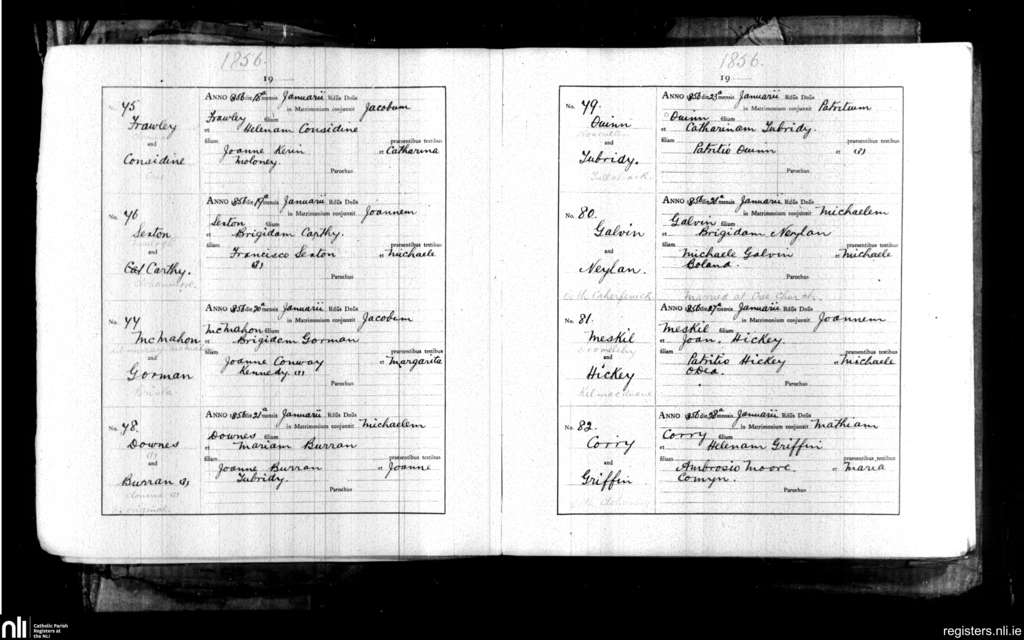 1856.
19
No. 75
Frawley
and
Considine
Cree
ANNO 1856 die 15ª mensis Januarii Rdss Dnüs
in Matrimonium conjunxit Jacobum
Frawley filium
et Helenam Considine
filiam praesentibus testibus
Joanne Kerin et Catharina
Moloney.
Parochus
No. 76
Sexton
and
Carthy.
ANNO 1856 die 19ª mensis Januarii Rdss Dnüs
in Matrimonium conjunxit Joannem
Sexton filium
et Brigidam Carthy.
filiam praesentibus testibus
Francisco Sexton et Michaele
(?)
Parochus
No. 77
McMahon
and
Gorman
ANNO 1856 die 20ª mensis Januarii Rdss Dnüs
in Matrimonium conjunxit Jacobum
McMahon filium
et Brigidam Gorman
filiam praesentibus testibus
Joanne Conway et Margarita
Kennedy (?)
Parochus
No. 78.
Downes
(?)
and
Burran (?)
ANNO 1856 die 21ª mensis Januarii Rdss Dnüs
in Matrimonium conjunxit Michaelem
Downes filium
et Mariam Burran
filiam praesentibus testibus
Joanne Burran et Joanne
Tubridy.
Parochus
1856.
19
No. 79.
Quinn
and
Tubridy.
ANNO 1856 die 23ª mensis Januarii Rdss Dnüs
in Matrimonium conjunxit Patritium
Quinn filium
et Catharinam Tubridy.
filiam praesentibus testibus
Patritio Quinn et (?)
Parochus
No. 80.
Galvin
and
Neylan.
ANNO 1856 die 26ª mensis Januarii Rdss Dnüs
in Matrimonium conjunxit Michaelem
Galvin filium
et Brigidam Neylan
filiam praesentibus testibus
Michaele Galvin et Michaele
Boland.
Parochus
Married at Cree Church.
No. 81.
Meskil
and
Hickey
ANNO 1856 die 27ª mensis Januarii Rdss Dnüs
in Matrimonium conjunxit Joannem
Meskil filium
et Joan. Hickey.
filiam praesentibus testibus
Patritio Hickey et Michaele
O'Dea.
Parochus
No. 82.
Corry
and
Griffin
ANNO 1856 die 28ª mensis Januarii Rdss Dnüs
in Matrimonium conjunxit Mathiam
Corry filium
et Helenam Griffin
filiam praesentibus testibus
Ambrosio Moore. et Maria
Comyn.
Parochus
nli Catholic Parish
Registers at
the NLI
registers.nli.ie